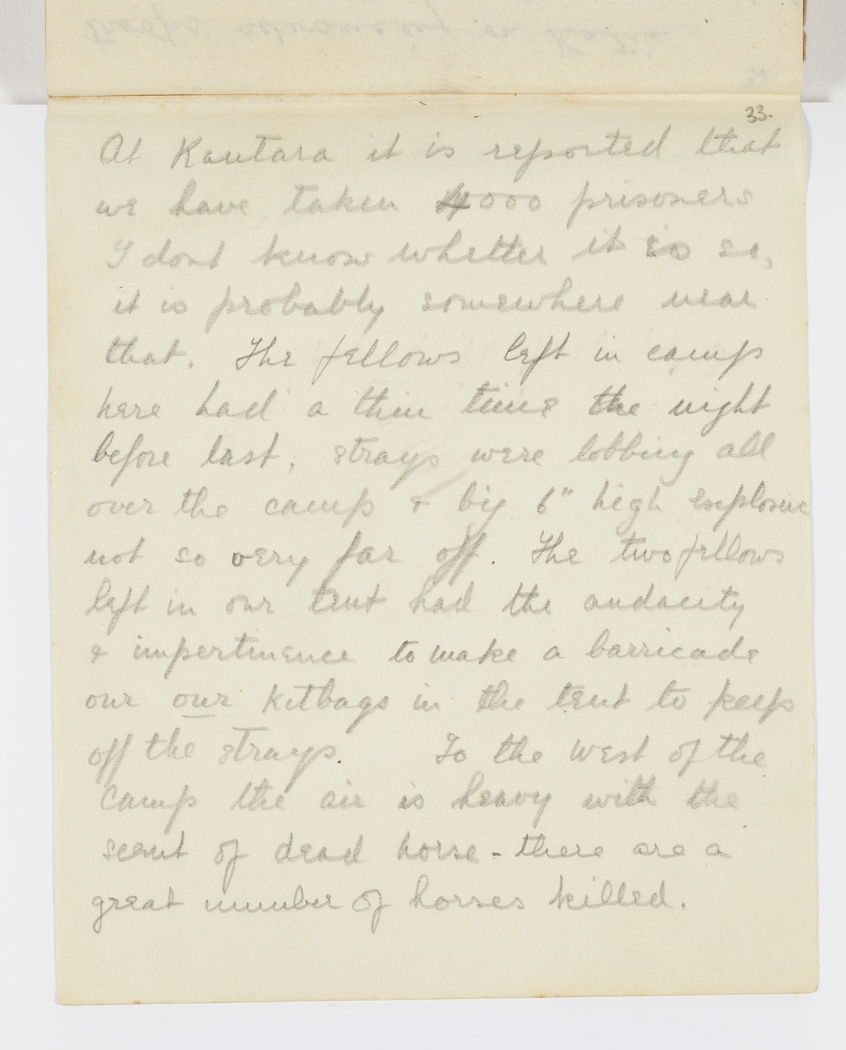 33.
At Kantara it is reported that
we have taken 4000 prisoners
I dont know whether it is so,
it is probably somewhere near
that. The fellows left in camp
here had a thin time the night
before last, strays were lobbing all
over the camp & big 6" high explosive
not so very far off. The two fellows
left in our tent had the audacity
& impertinence to make a barricade
our our kitbags in the tent to keep
off the strays. To the west of the
camp the air is heavy with the
scent of dead horse - there are a
great number of horses killed.